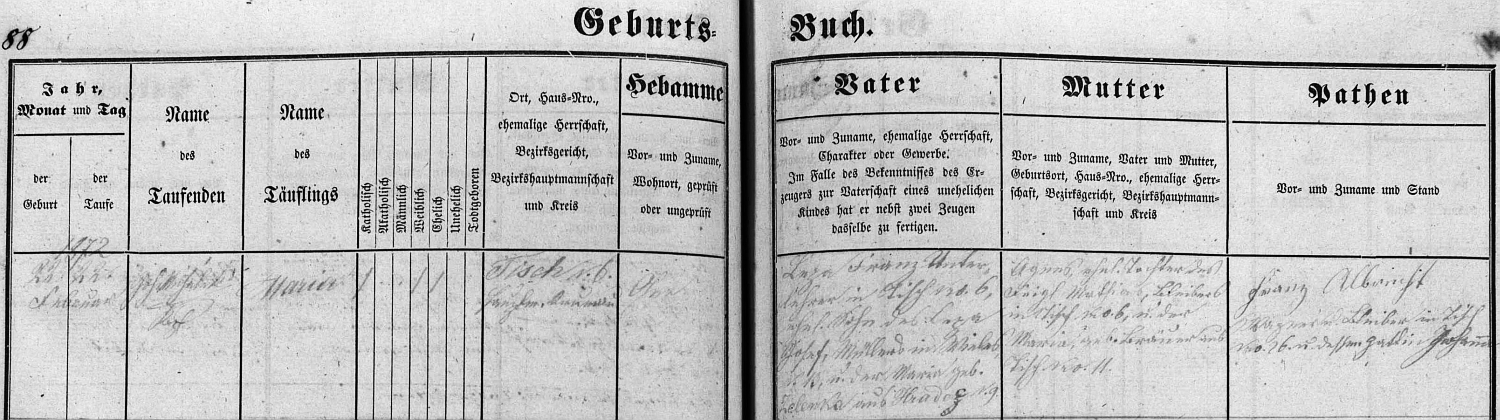 88
Geburts=
Buch.
Jahr,
Monat und Tag
der
Geburt
der
Taufe
Name
des
Taufenden
Name
des
Täuflings
Katholisch
Akatholisch
Männlich
Weiblich
Ehelich
Unehelich
Todtgeboren
Ort, Haus-Nro.,
ehemalige Herrschaft,
Bezirksgericht,
Bezirkshauptmannschaft
und Kreis
Hebamme
Vor- und Zuname,
Wohnort, geprüft
oder ungeprüft
Vater
Vor- und Zuname, ehemalige Herrschaft,
Charakter oder Gewerbe.
Im Falle des Bekenntnisses des Er-
zeugers zur Vaterschaft eines unehelichen
Kindes hat er nebst zwei Zeugen
dasselbe zu fertigen.
Mutter
Vor- und Zuname, Vater und Mutter,
Geburtsort, Haus-Nro., ehemalige Herr-
schaft, Bezirksgericht, Bezirkshauptmann-
schaft und Kreis
Pathen
Vor- und Zuname und Stand
1872
Februar
Maria
Tisch N. 6.
Lepa Franz Unter-
lehrer in Tisch No. 6,
ehel. Sohn des Lepa
Josef, Müllers in
u. der Maria geb.
Zelenka aus Hrado
Agnes, ehel. Tochter des
Feigl Mathias, Bleibers
in Tisch No. 6, u. der
Maria, geb. Bräuer aus
Tisch No. 11.
Franz Albricht
Bleiber in Tisch
No. 26 u. dessen Gattin Johanna